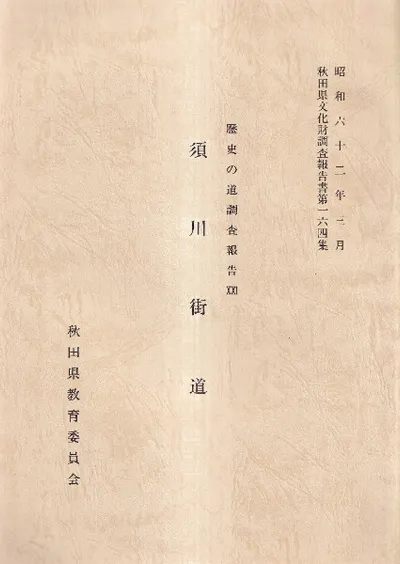 昭和六十二年三月
秋田県文化財調査報告書第一六四集
歴史の道調査報告XXI
須川街道
秋田県教育委員会